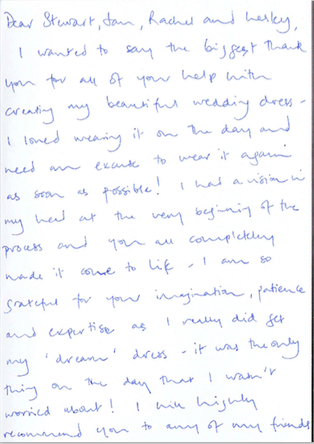 Dear Stewart, Jan, Rachel and Lesley,
I wanted to say the biggest thank
you for all of your help with
creating my beautiful wedding dress -
I loved wearing it on the day and
need an excuse to wear it again
as soon as possible! I had a vision in
my head at the very beginning of the
process and you all completely
made it come to life - I am so
grateful for your imagination, patience
and expertise as I really did get
my 'dream' dress - it was the only
thing on the day that I wasn't
worried about! I will highly
recommend you to any of my friends